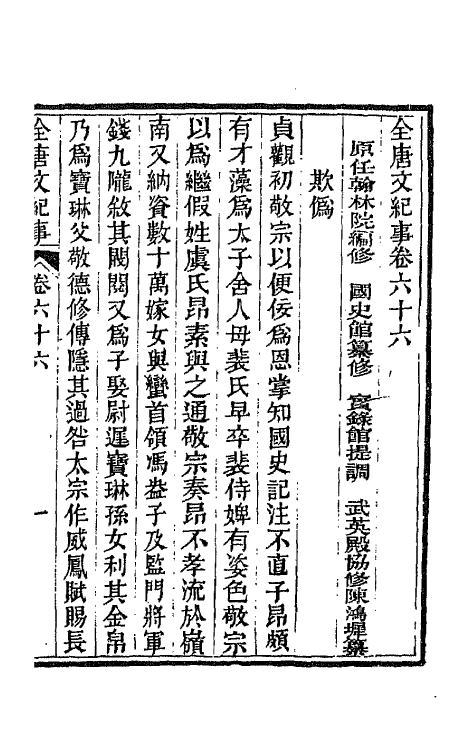 全唐文紀事卷六十六
原任翰林院編修　國史館纂修　實錄館提調　武英殿協修陳鴻墀纂
欺僞
貞觀初敬宗以便佞爲恩掌知國史記注不直子昂頗
有才藻爲太子舍人母裴氏早卒裴侍婢有姿色敬宗
以爲繼假姓虞氏昂素與之通敬宗奏昂不孝流於嶺
南又納資數十萬嫁女與蠻首領馮盎子及監門將軍
錢九隴敘其閥閱又爲子娶尉遲寶琳孫女利其金帛
乃爲寶琳父敬德修傳隱其過咎太宗作威鳳賦賜長
全唐文紀事　卷六十六　一